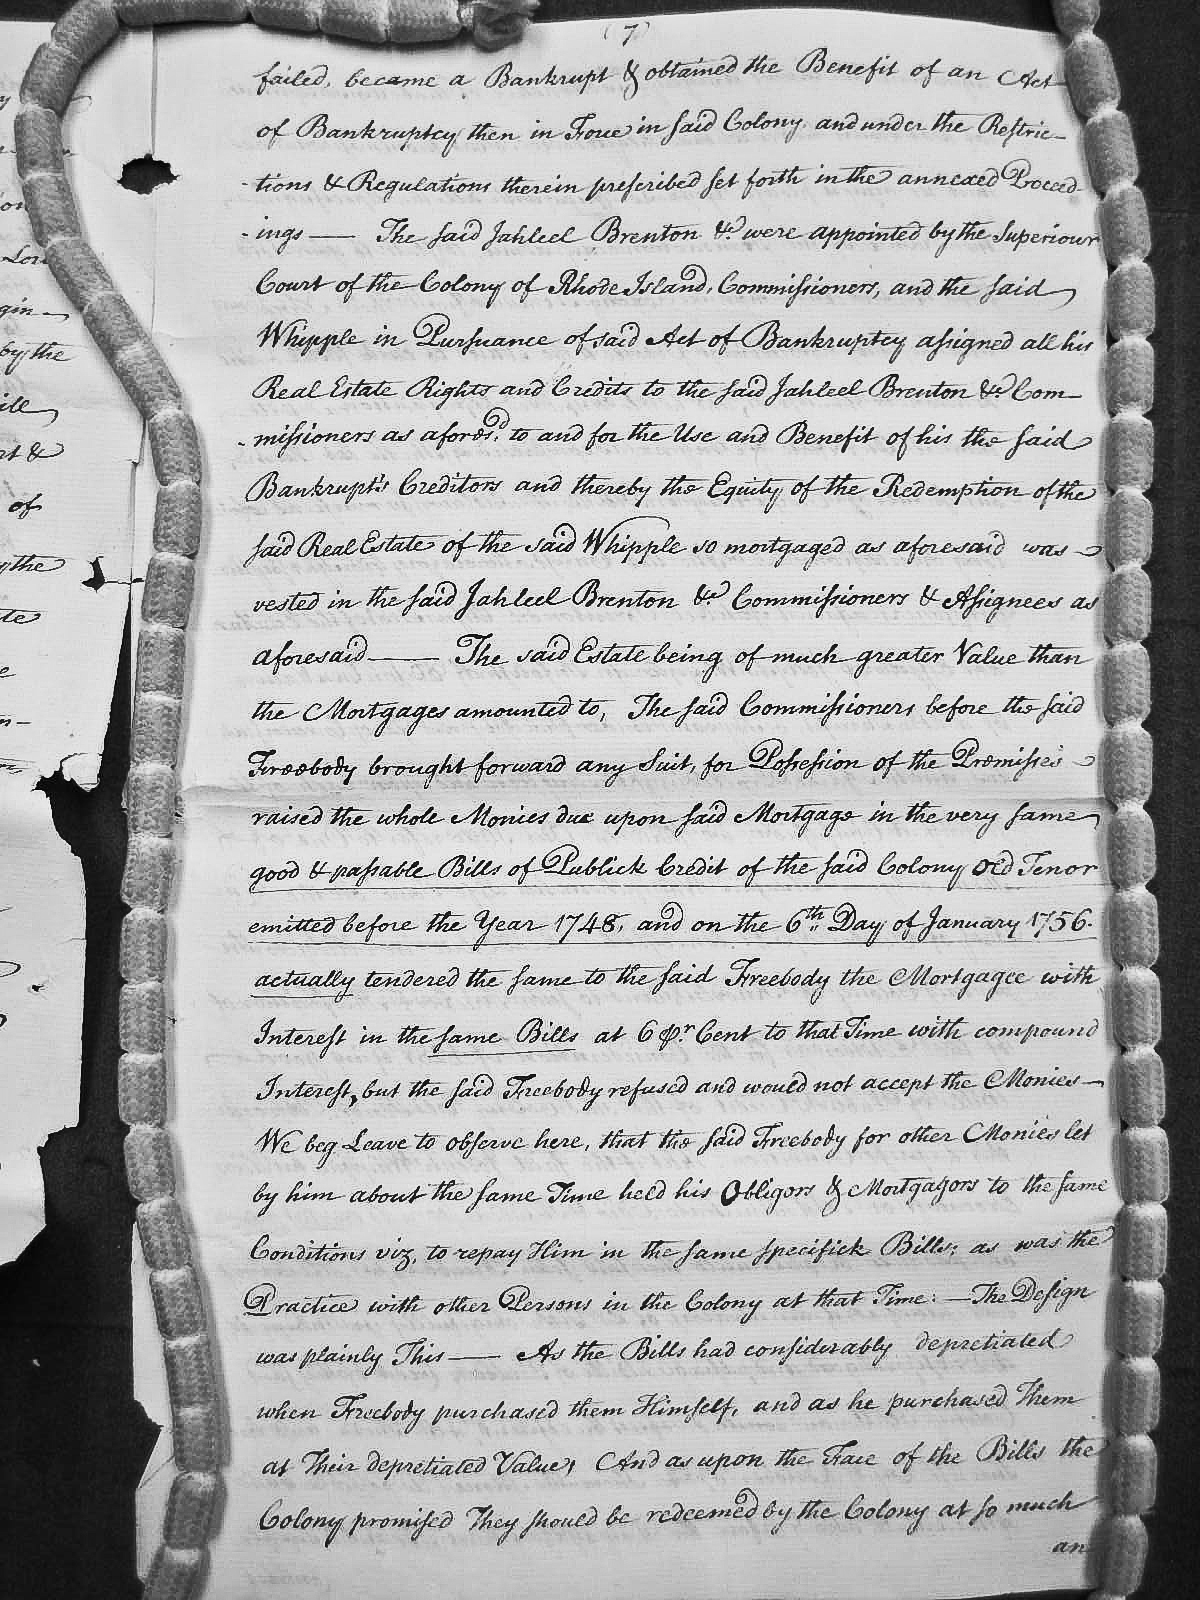 (7)
failed, became a Bankrupt & obtained the Benefit of an Act
of Bankruptcy then in Force in said Colony and under the Restric-
-tions & Regulations therein prescribed set forth in the annexed Proceed
-ings — The said Jahleel Brenton &c were appointed by the Superiour
Court of the Colony of Rhode Island, Commissioners, and the said
Whipple in Pursuance of said Act of Bankruptcy assigned all his
Real Estate Rights and Credits to the said Jahleel Brenton &c Com-
-missioners as afores.d to and for the Use and Benefit of his the said
Bankrupt's Creditors and thereby the Equity of the Redemption of the
said Real Estate of the said Whipple so mortgaged as aforesaid was
vested in the said Jahleel Brenton &c Commissioners & Assignees as
aforesaid — The said Estate being of much greater Value than
the Mortgages amounted to, The said Commissioners before the said
Freebody brought forward any Suit, for Possession of the Premisses
raised the whole Monies due upon said Mortgage in the very same
good & passable Bills of Publick Credit of the said Colony Old Tenor
emitted before the Year 1748, and on the 6th Day of January 1756.
actually tendered the same to the said Freebody the Mortgagee with
Interest in the same Bills at 6 Pr Cent to that Time with compound
Interest, but the said Freebody refused and would not accept the Monies—
We beg Leave to observe here, that the said Freebody for other Monies let
by him about the same Time held his Obligors & Mortgagors to the same
Conditions viz, to repay Him in the same specifick Bills; as was the
Practice with other Persons in the Colony at that Time: — The Design
was plainly This — As the Bills had considerably depretiated
when Freebody purchased them Himself, and as he purchased Them
at Their depretiated Value, And as upon the Face of the Bills the
Colony promised They should be redeemed by the Colony at so much
an
by the
of
the